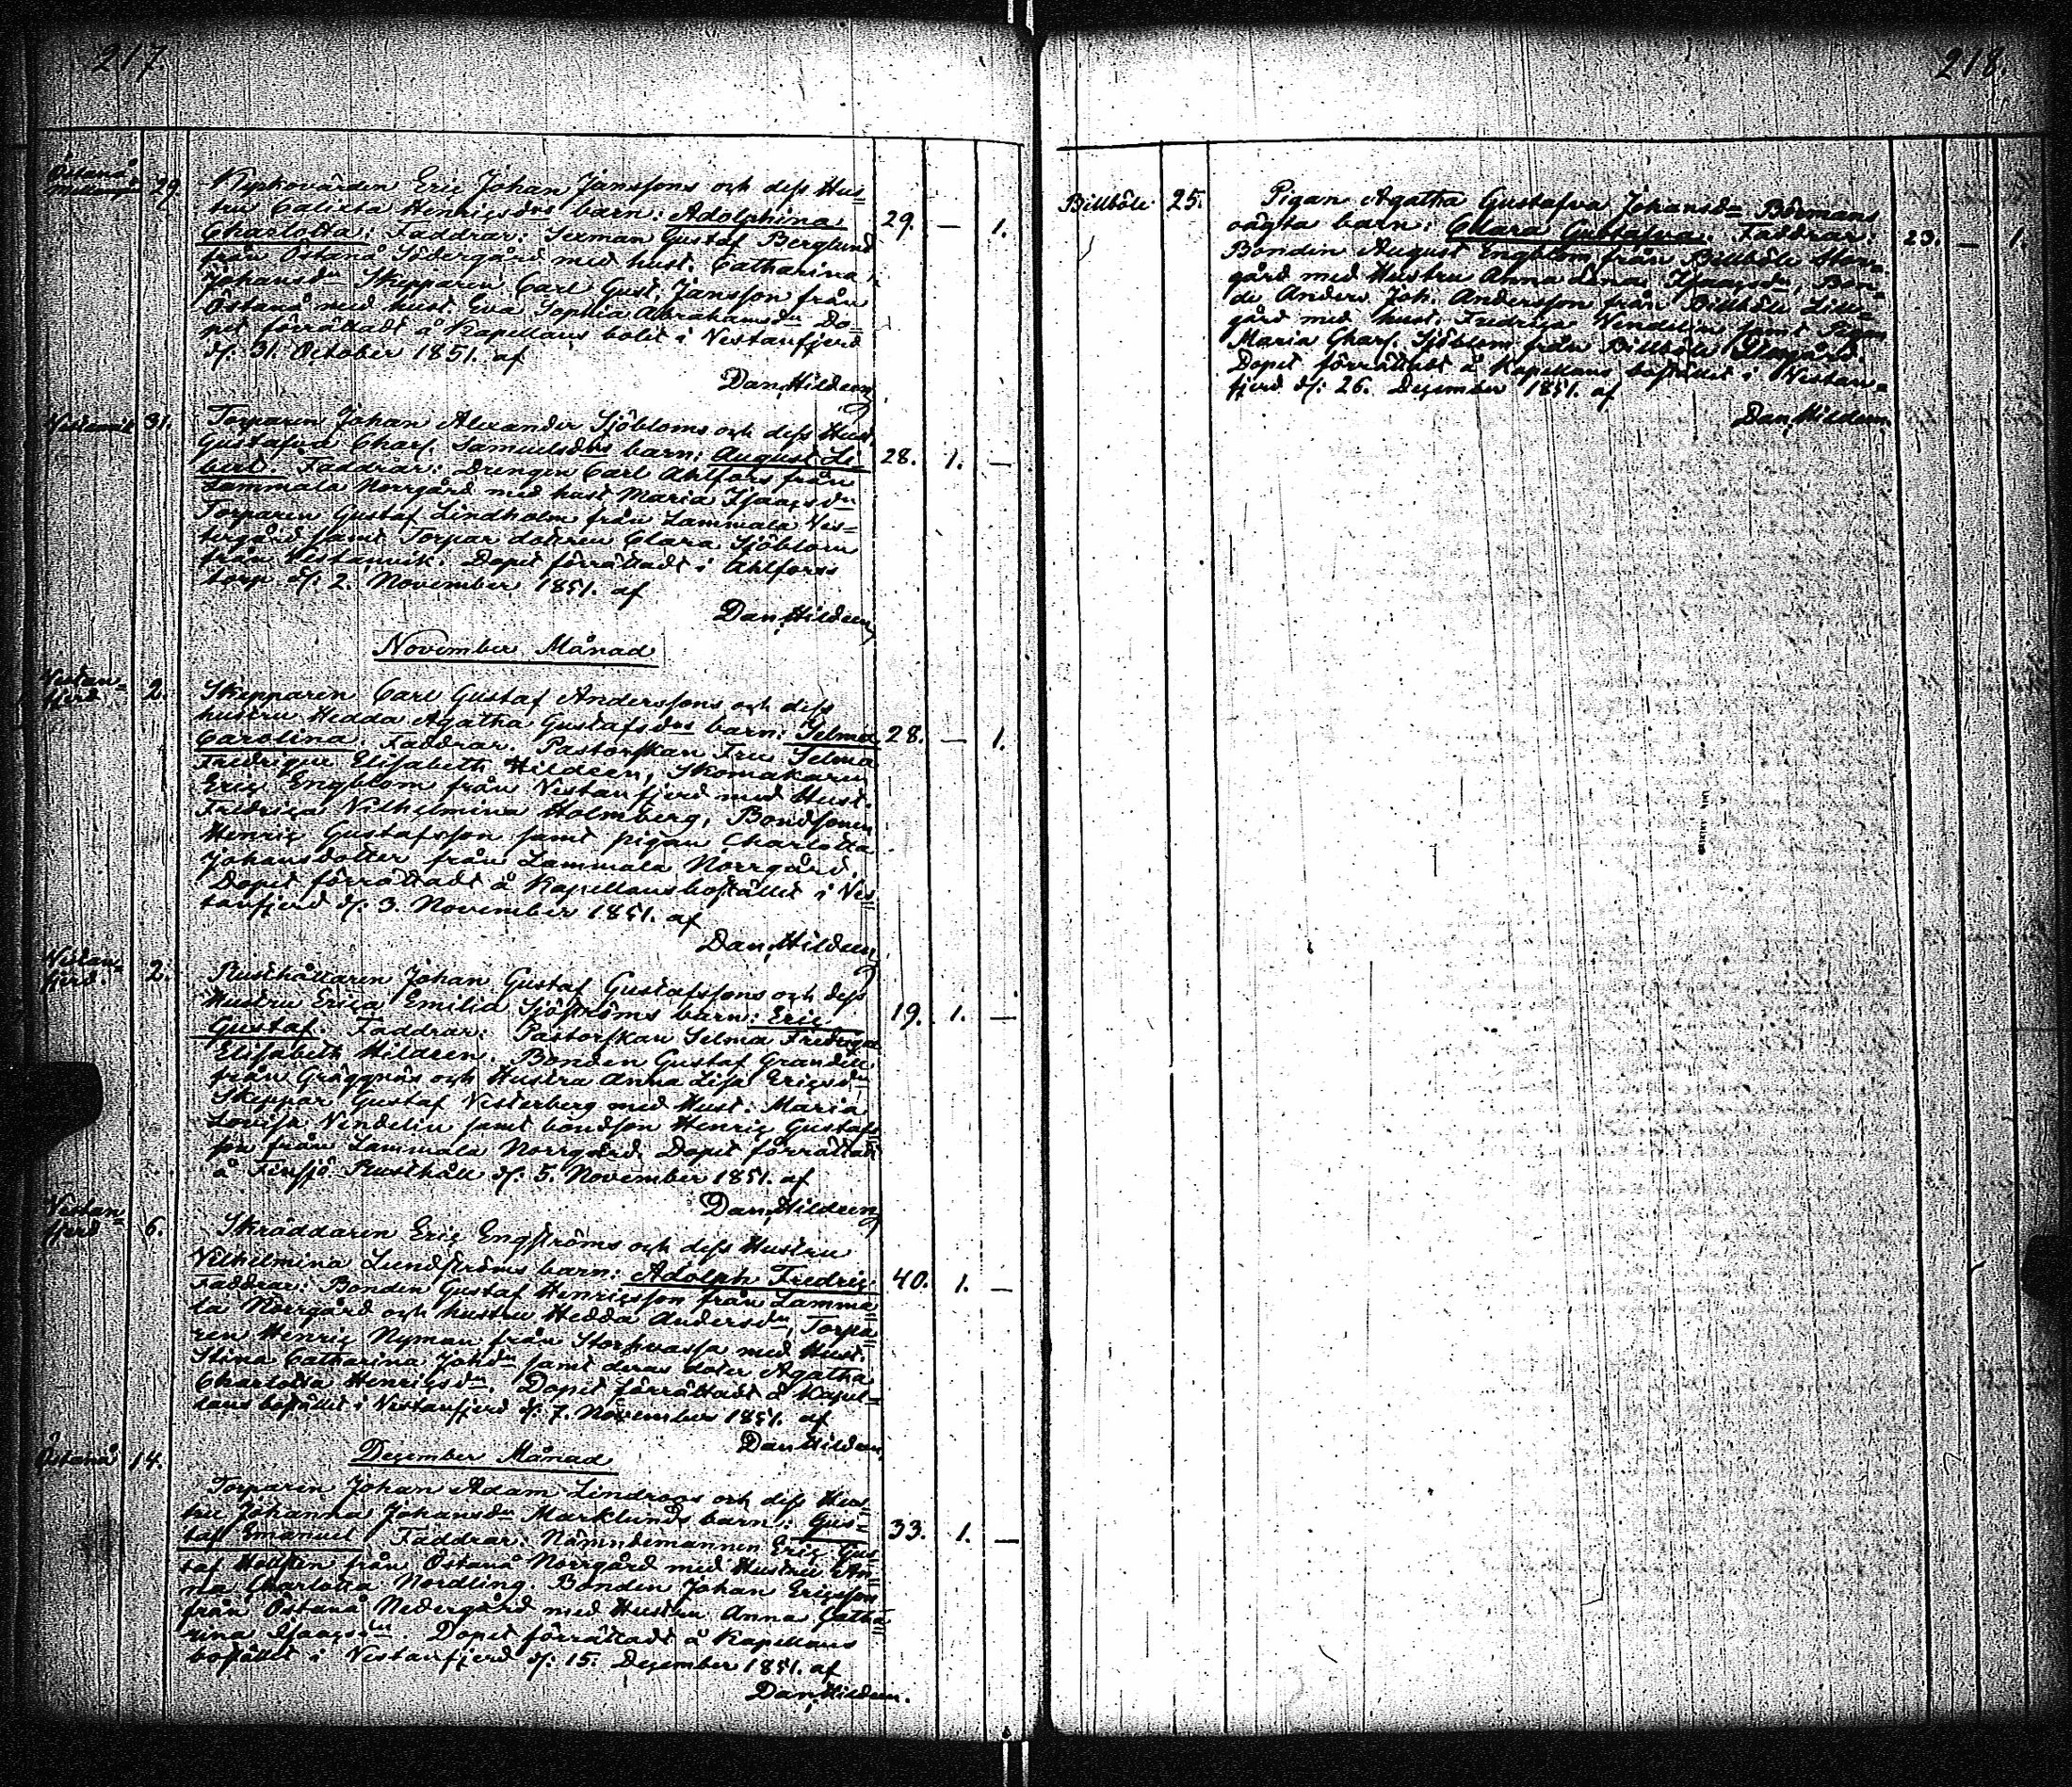 217
Östanå 29. Kyrkovärden Eric Johan Janssons och dess Hus=
tru Calixta Henricsdrs barn: Adolphina 29. — 1.
Charlotta: Faddrar: Sexman Gustaf Berglund
från Östanå Södergård med hust. Catharina
Johansdr Skepparen Carl Gust. Jansson från
Östanå med hust. Eva Sophia Abrahamsdr Do=
pet förrättadt å Kapellans bolet i Vestanfjerd
d/: 31. October 1851. af
Dan. Hildeen
31. Torparen Johan Alexander Sjöbloms och dess Hust.
Gustafva Charl. Samuelsdrs barn: August 28. 1. —
Faddrar: Drengen Carl Ahlfors från
Lammala Norrgård med hust Maria Isaacsdr
Torparen Gustaf Lindholm från Lammala Ves=
tergård samt Torpar dottren Clara Sjöblom
från Vestanvik. Dopet förrättadt i Ahlfors
torp d/: 2. November 1851. af
Dan. Hildeen
November Månad
Vestan=
fjerd 2. Skepparen Carl Gustaf Anderssons och dess
hustru Hedda Agatha Gustafsdrs barn: Selma 28. — 1.
Carolina. Faddrar. Pastorskan Fru Selma
Fredrique Elisabeth Hildeen, Skomakaren
Eric Engblom från Vestanfjerd med Hust.
Fredrica Vilhelmina Holmberg, Bondsonen
Henric Gustafsson samt pigan Charlotta
Johansdotter från Lammala Norrgård.
Dopet förrättadt å Kapellansbostället i Ves=
tanfjerd d/: 3. November 1851. af
Dan. Hildeen
Vestan=
fjerd. 2. Rusthållaren Johan Gustaf Gustafssons och dess
Hustru Erica Emilia Sjöströms barn: Eric 19. 1. —
Gustaf. Faddrar: Pastorskan Selma Fredrique
Elisabeth Hildeen. Bonden Gustaf Grandell
från Gräggnäs och Hustru Anna Lisa Ericsdr
Skeppar Gustaf Vesterberg med Hust: Maria
Lovisa Vendelin samt bondson Henric Gustafs=
son från Lammala Norrgård. Dopet förrättadt
å Finsjö Rusthåll d/: 5. November 1851. af
Dan. Hildeen
Vestan=
fjerd 6. Skräddaren Eric Engströms och dess Hustru
Vilhelmina Lundströms barn: Adolph Fredric 40. 1. —
Faddrar: Bonden Gustaf Henricsson från Lamma=
la Norrgård och hustru Hedda Andersdr, Torpa=
ren Henric Nyman från med Hust.
Stina Catharina Johdr samt deras doter Agatha
Charlotta Henricsdr. Dopet förrättadt å Kapel=
lans bostället i Vestanfjerd d/: 7. November 1851. af
Dan. Hildeen
December Månad
Östanå 14. Torparen Johan Adam Lindroos och dess Hus=
tru Johanna Johansdr Marklunds barn: Gus= 33. 1. —
taf Emanuel. Faddrar: Nämndemannen Eric Gus=
taf Hollsten från Östanå Norrgård med Hustru An=
na Charlotta Nordling. Bonden Johan Ericsson
från Östanå Nedergård med Hustru Anna Catha=
rina Isaacsdr. Dopet förrättadt å Kapellans
bostället i Vestanfjerd d/: 15. December 1851. af
Dan. Hildeen.
218.
Billböle 25. Pigan Agatha Gustafva Johansdr Börmans
oägta barn: Clara Gustafva. Faddrar: 23. — 1.
Bonden August Engblom från Billböle Stor=
gård med Hustru Anna Lena Isaacsdr, Bon=
de Anders Joh. Andersson från Billböle Lill=
gård med hust. Fredrica Wendelin samt Pigan
Maria Charl. Sjöblom från Billböle Storgård.
Dopet förrättadt å Kapellans bostället i Vestan=
fjerd d/: 26. December 1851. af
Dan. Hildeen